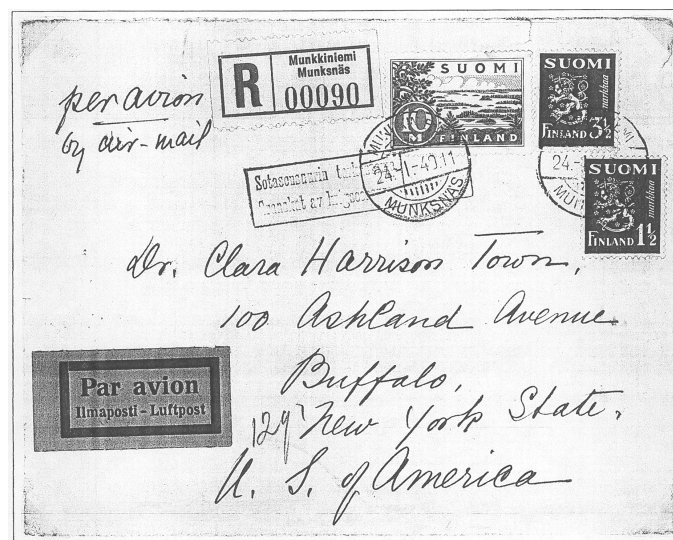 per avion
by air-mail
R
Munkkiniemi
Munksnäs
00090
SUOMI
10
M
FINLAND
SUOMI
markkaa
FINLAND 3½
SUOMI
markkaa
FINLAND 1½
Sotasensuurin
Granskat av
24.-1-40.11
MUNKSNÄS
24.
Dr. Clara Harrison Town,
100 Ashland Avenue
Buffalo,
New York State.
U. S. of America
Par avion
Ilmaposti - Luftpost